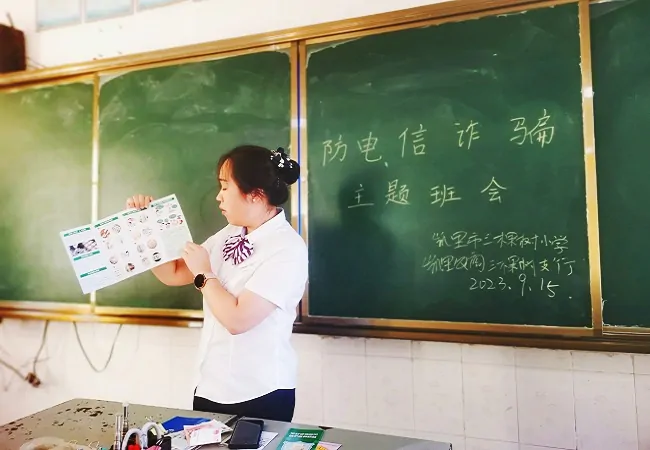 防电信诈骗
主题班会
凯里市三棵树小学
凯里农商三棵树支行
2023.9.15